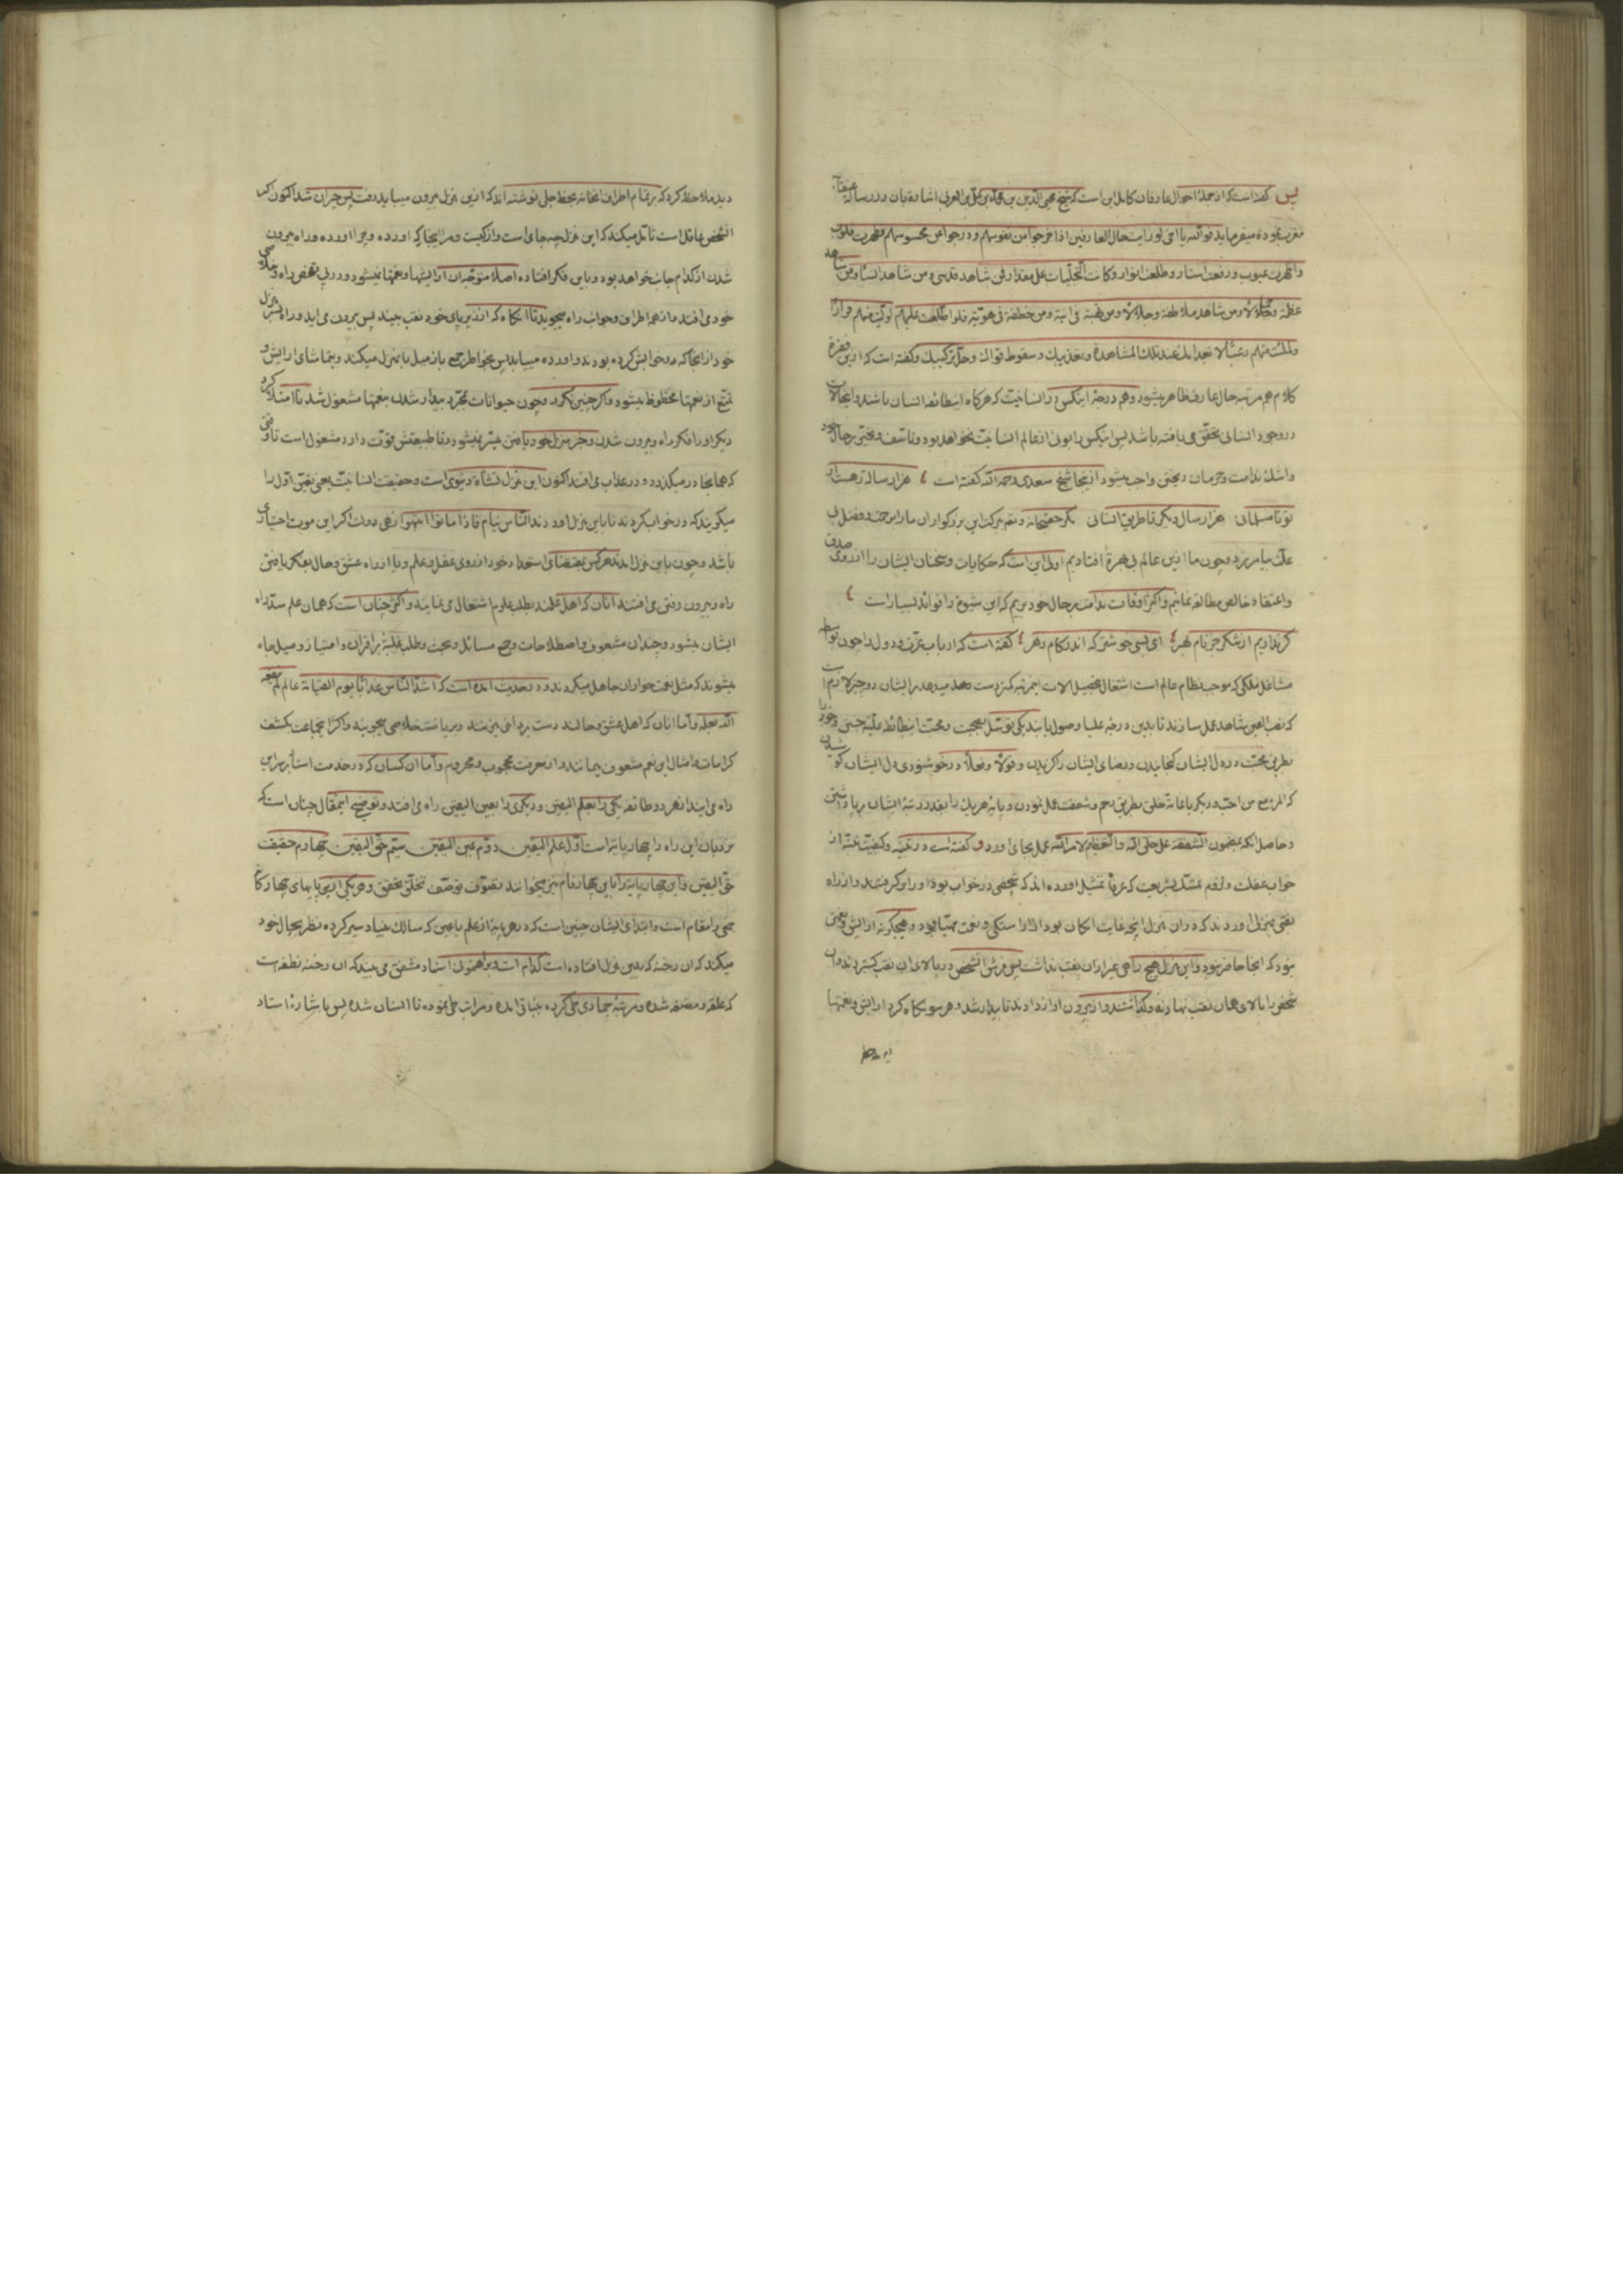 پس گفته است که از جملهٔ احوال عارفان کامل این است که شیخ محیی الدین بن علی بن العربی اشارة بان در رسالهٔ عنقاء
مغرب نموده میفرماید قوله یا اخی لو رایت حال العارفین اذا خرجوا من نفوسهم و درجوا من محسوسهم و ظهرت قلوب
و اظهرت غیوب و رفعت استار و طلعت انوار و کانت التجلیات علی مقدار فمن شاهد قدسی و من شاهد انسا و من شاهد
عظمة و من شاهد ملاطفة و من هیبة فی انیة و من خطفة فی هویة فلو اطلعت علیهم لولیت منهم فرارا
و لملئت منهم رعبا عند تلک المشاهدة و سقوط قواک و حل ترکیبک و گفته است که ازین فقرهٔ
کلام هم مرتبه حال عارف ظاهر میشود و هم درجهٔ اینکس در انسانیت که هرگاه اینطائفه انسان باشند و اینحالات
در وجود انسانی تحقق می یافته باشد پس اینکس را بوئی از عالم انسانیت نخواهد بود و تاسف و تحسر بر حال خود
و اشک ندامت و حرمان ریختن واجب میشود ازینجا شیخ سعدی رحمه الله گفته است ع هزار ساله رهست از
تو تا مسلمانی هزار سال دیگر تا طریق انسانی مگر حقسبحانه و تعالی ببرکت این بزرگواران ما را برحمت و فضل بی
علت بیامرزد و چون ما ازین عالم بی بهره افتادیم اولی این است که حکایات و سخنان ایشان را از روی صدق
و اعتقاد خالص مطالعه نمائیم و اکثر اوقات ندامت بر حال خود بریم که این شیوع را فوائد بسیار است ع
گر نداریم از شکر جز نام بهر ع ای بسی خوشتر که اندر کام زهر ع گفته است که ارباب عزت و دول را چون بواسطه
مشاغل ملکی که موجب نظام عالم است اشتغال بتحصیل الات این مرتبه کمتر دست دهد میدهد برایشان دو چیز لازم است
که نصب العین شاهد عمل سازند تا بدین درجهٔ علیا وصول یابند یکی توسل بمحبت و محبت اینطائفه علیه جستن و خود را
بطریق محبت در دل ایشان گنجانیدن و رضای ایشان را گزیدن و قولا و فعلا در خوشنودی دل ایشان کوشیدن
که المرء مع من احب و دیگر با عامهٔ خلق بطریق رحم و شفقت عمل نمودن و پایهٔ هر یک را بقدر رتبهٔ ایشان برپا داشتن
و حاصل انکه بمضمون الشفقة علی خلق الله و التعظیم لامر الله عمل بجای اورد و گفته است در تنبیه و کیفیت تنبه از
خواب غفلت و لزوم تمسک بشریعت که عرفا تمثیل اورده اند که شخصی در خواب بود او را برگرفتند و از راه
نقبی بمنزلی اوردند که دران منزل انچه غایت امکان بود از اراستگی و نعمت مهیا بود و هیچگونه ارایش و نعمتی
نبود که انجا حاضر نبود و این منزل هیچ راهی غیر ازان نقب نداشت پس فرش الشخص در بالای ان نقب گستردند و ان
شخص را بالای همان نقب نهادند و گذاشتند و از بیرون اواز دادند تا بیدار شد و هر سو نگاه کرد ارایش و نعمتها
دید ملاحظه کرد که بتمام اطراف انخانه بخط جلی نوشته اند که ازین منزل بیرون میباید رفت پس حیران شد اکنون اگر
الشخص عاقل است تامل میکند که این منزل چه جای است و از کیست و مرا اینجا که اورده و چرا اورده و راه بیرون
شدن از کدام جانب خواهد بود و باین فکر افتاده اصلا متوجه ان ارایشها و نعمتها نمیشود و در پی تفحص راه و خلاصی
خود می افتد و از همه اطراف و جوانب راه میجوید تا انگاه که از زیر پای خود نقب بیند پس بیرون می اید و راه بمنزل
خود از انجا که در خوابش کرده بودند و اورده میابد پس بخاطر جمع باز میل بانمنزل میکند و بتماشای ارایش و
تمتع از نعمتها محظوظ میشود و اگر چنین نکرد و چون حیوانات بمجرد بیدار شدن بنعمتها مشغول شد تا امتلا کرد
دیگر او را فکر راه و بیرون شدن و خبر منزل خود یافتن میسر نمیشود و تا طبیعتش قوت دارد مشغول است تا وقتی
که همانجا در میگذرد و در عذاب می افتد اکنون این منزل نشاهٔ دنیوی است و حقیقت انسانیت یعنی تعین اول را
میگویند که در خواب کردند تا باین منزل اوردند الناس نیام فاذا ماتوا انتبهوا زهی دولت اگر این موت اختیاری
باشد و چون باین منزل امدند هر کس بمقتضای استعداد خود از روی عقل و علم و یا از راه عشق و حال بفکر یافتن
راه و بیرون رفتن می افتند انان که اهل علمند بطلب علوم اشتغال می نمایند و اکثر چنان است که همان علم سد راه
ایشان میشود و چندان مشعوف و اصطلاحات و جمع مسائل و بحث و طلب غلبهٔ بر اقران و امتیاز و میل جاه
میشوند که مثل نعمت خواران جاهل میگردند و در حدیث امده است که اشد الناس عذابا یوم القیامة عالم لم ینفعه
الله بعلمه و اما انان که اهل عشق و حالند دست بر دامن میزنند و بریاضت خلاصی میجویند و اکثر انجماعت بکشف
کرامات و امثال این نعم مشعوف میمانند و از معرفت محجوب و محروم و اما ان کسان که در خدمت استاد بر سر این
راه می ایند از هر دو طائفه یکی را بعلم الیقین و دیگری را بعین الیقین راه می افتد و توضیح اینمقال چنان است که
نردبان این راه را چهار پایه است اول علم الیقین دوم عین الیقین سیم حق الیقین چهارم حقیقت
حق الیقین و این چهار پایه را باین چهار نام نیز میخوانند تصوف توصف تخلق تحقق و هر یکی ازین پایهای چهارگانه
جمعی را مقام است و ابتدای ایشان چنین است که در هر پایه از علم یا عین که سالک بنیاد سیر کرده نظر بحال خود
میکند که ان رخنه که بدین منزل افتاده است کدام است و براهنمونی استاد مشفق می بیند که ان رخنه نطفه است
که علقه و مضغه شده و مرتبهٔ جمادی طی کرده بنباتی امده و مراتب طی نموده تا انسان شده پس باشارهٔ استاد